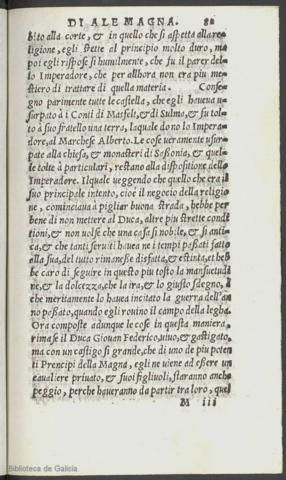 DI ALEMAGNA. 82
bito alla corte, & in quello che si aspetta alla re=
ligione, egli stette al principio molto duro, ma
poi egli rispose sì humilmente, che fu il parer del=
lo Imperadore, che per allhora non era piu me=
stiero di trattare di quella materia. Conse=
gno parimente tutte le castella, che egli haueua u=
surpato à i Conti di Masfelt, & di Sulma, & fu tol=
to à suo fratello una terra, laquale dono lo Impera=
dore, al Marchese Alberto. Le cose ueramente usur=
pate alla chiesa, & monasteri di Sassonia, & quel=
le tolte à particulari, restano alla dispositione dello
Imperadore. Il quale ueggendo che quello che era il
suo principale intento, cioè il negocio della religio
ne, cominciaua à pigliar buona strada, hebbe per
bene di non mettere al Duca, altre piu strette condi
tioni, & non uolse che una casa sì nobile, & sì anti=
ca, & che tanti seruiti hauea ne i tempi passati fatto
alla sua, del tutto rimanesse disfatta, & estinta, et heb
be caro di seguire in questo piu tosto la mansuetudi
ne, & la dolcezza, che la ira, & lo giusto sdegno, à
che meritamente lo hauea incitato la guerra dell'an
no passato, quando egli rouino il campo della legha.
Ora composte adunque le cose in questa maniera,
rimase il Duca Giouan Federico, uiuo, & gastigato,
ma con un castigo sì grande, che di uno de piu poten
ti Prencipi della Magna, egli ne uiene ad essere un
caualiere priuato, & suoi figliuoli, staranno anche
peggio, perche haueranno da partir tra loro, quel
M iii
Biblioteca de Galicia